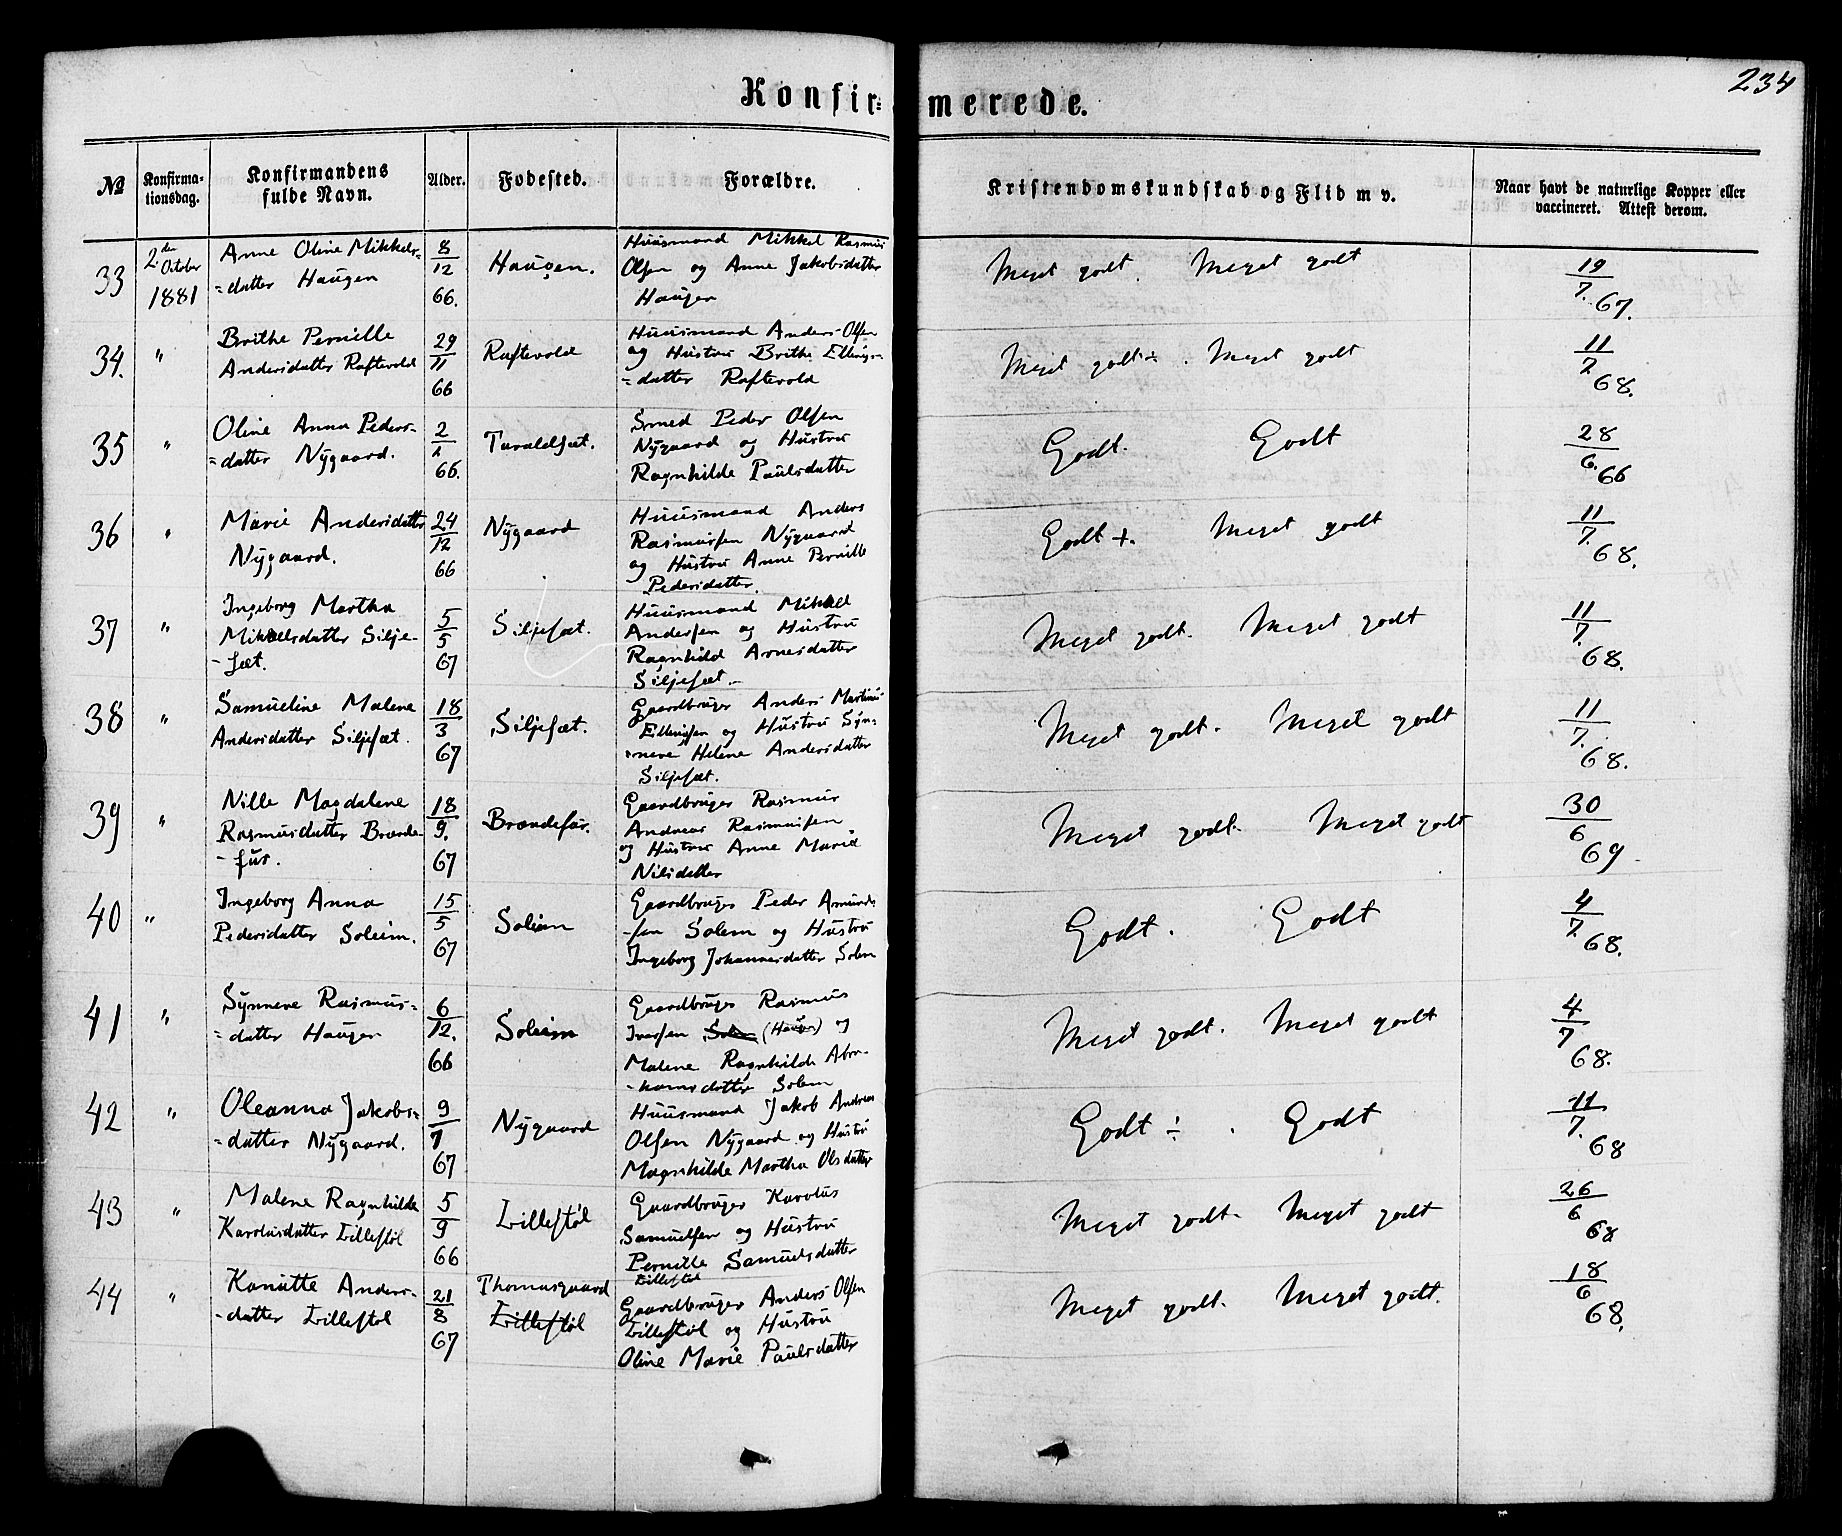 234
Konfir=merede.
№ Konfirma- Konfirmandens Alder. Fødested. Forældre. Kristendomskundskab og Flid m v. Naar havt de naturlige Kopper eller
tionsdag. fulde Navn. vaccineret. Attest derom.
33 2den Anne Oline Mikkels= 8 Haugen. Huusmand Mikkel Rasmus Meget godt. Meget godt 19
October =datter Haugen 12 Olsen og Anne Jakobsdatter 7.
1881 66. Haugen 67.
34. " Brithe Pernille 29 Raftevold Huusmand Anders Olsen Meget godt÷. Meget godt 11
Andersdatter Raftevold 11 og Hustru Brithe Ellings= 7.
66 =datter Raftevold 68.
35 " Oline Anna Peders= 2 Taraldsæt. Smed Peder Olsen Godt. Godt 28
=datter Nygaard. Nygaard og Hustru 6.
66. Ragnhilde Paulsdatter 66
36 " Marie Andersdatter 24 Nygaard Huusmand Anders Godt +. Meget godt 11
Nygaard. 12 Rasmussen Nygaard 7.
66 og Hustru Anne Pernille 68.
Pedersdatter.
37 " Ingeborg Martha 5 Siljesæt. Huusmand Mikkel Meget godt. Meget godt 11
Mikkelsdatter Silje- 5 Andersen og Hustru 7.
-sæt. 67 Ragnhild Arnesdatter 68.
Siljesæt.
38 " Samueline Malene 18 Siljesæt. Gaardbruger Anders Martinus Meget godt. Meget godt 11
Andersdatter Siljesæt. 3 Ellingsen og Hustru Syn= 7.
67 =neve Helene Andersdatter 68.
Siljesæt.
39 " Nille Magdalene 18 Brandefur. Gaardbruger Rasmus Meget godt. Meget godt 30
Rasmusdatter Brande- 9. Andreas Rasmussen 6
-fur. 67 og Hustru Anne Marie 69
Nilsdatter
40 " Ingeborg Anna 15 Soleim Gaardbruger Peder Amund- Godt. Godt 4
Pedersdatter Soleim. 5 -sen Solem og Hustru 7.
67 Ingeborg Johannesdatter Solem 68.
41 " Synneve Rasmus- 6 Soleim Gaardbruger Rasmus Meget godt. Meget godt 4
=datter Haugen 12. Iversen Solem (Haugen) og 7
66 Malene Ragnhilde Abra- 68.
-hamsdatter Solem
42 " Oleanna Jakobs= 9 Nygaard Huusmand Jakob Andreas Godt ÷. Godt 11
=datter Nygaard. 7 Olsen Nygaard og Hustru 7.
67 Magnhilde Martha Olsdatter 68
43 " Malene Ragnhilde 5 Lillestøl Gaardbruger Karolus Meget godt. Meget godt 26
Karolusdatter Lillestøl 9 Samuelsen og Hustru 6
66 Pernille Samuelsdatter 68
Lillestøl
44 " Kanutte Anders- 21 Thomasgaard Gaardbruger Anders Olsen Meget godt. Meget godt. 18
-datter Lillestøl 8 Lillestøl Lillestøl og Hustru 6
67 Oline Marie Paulsdatter 68.